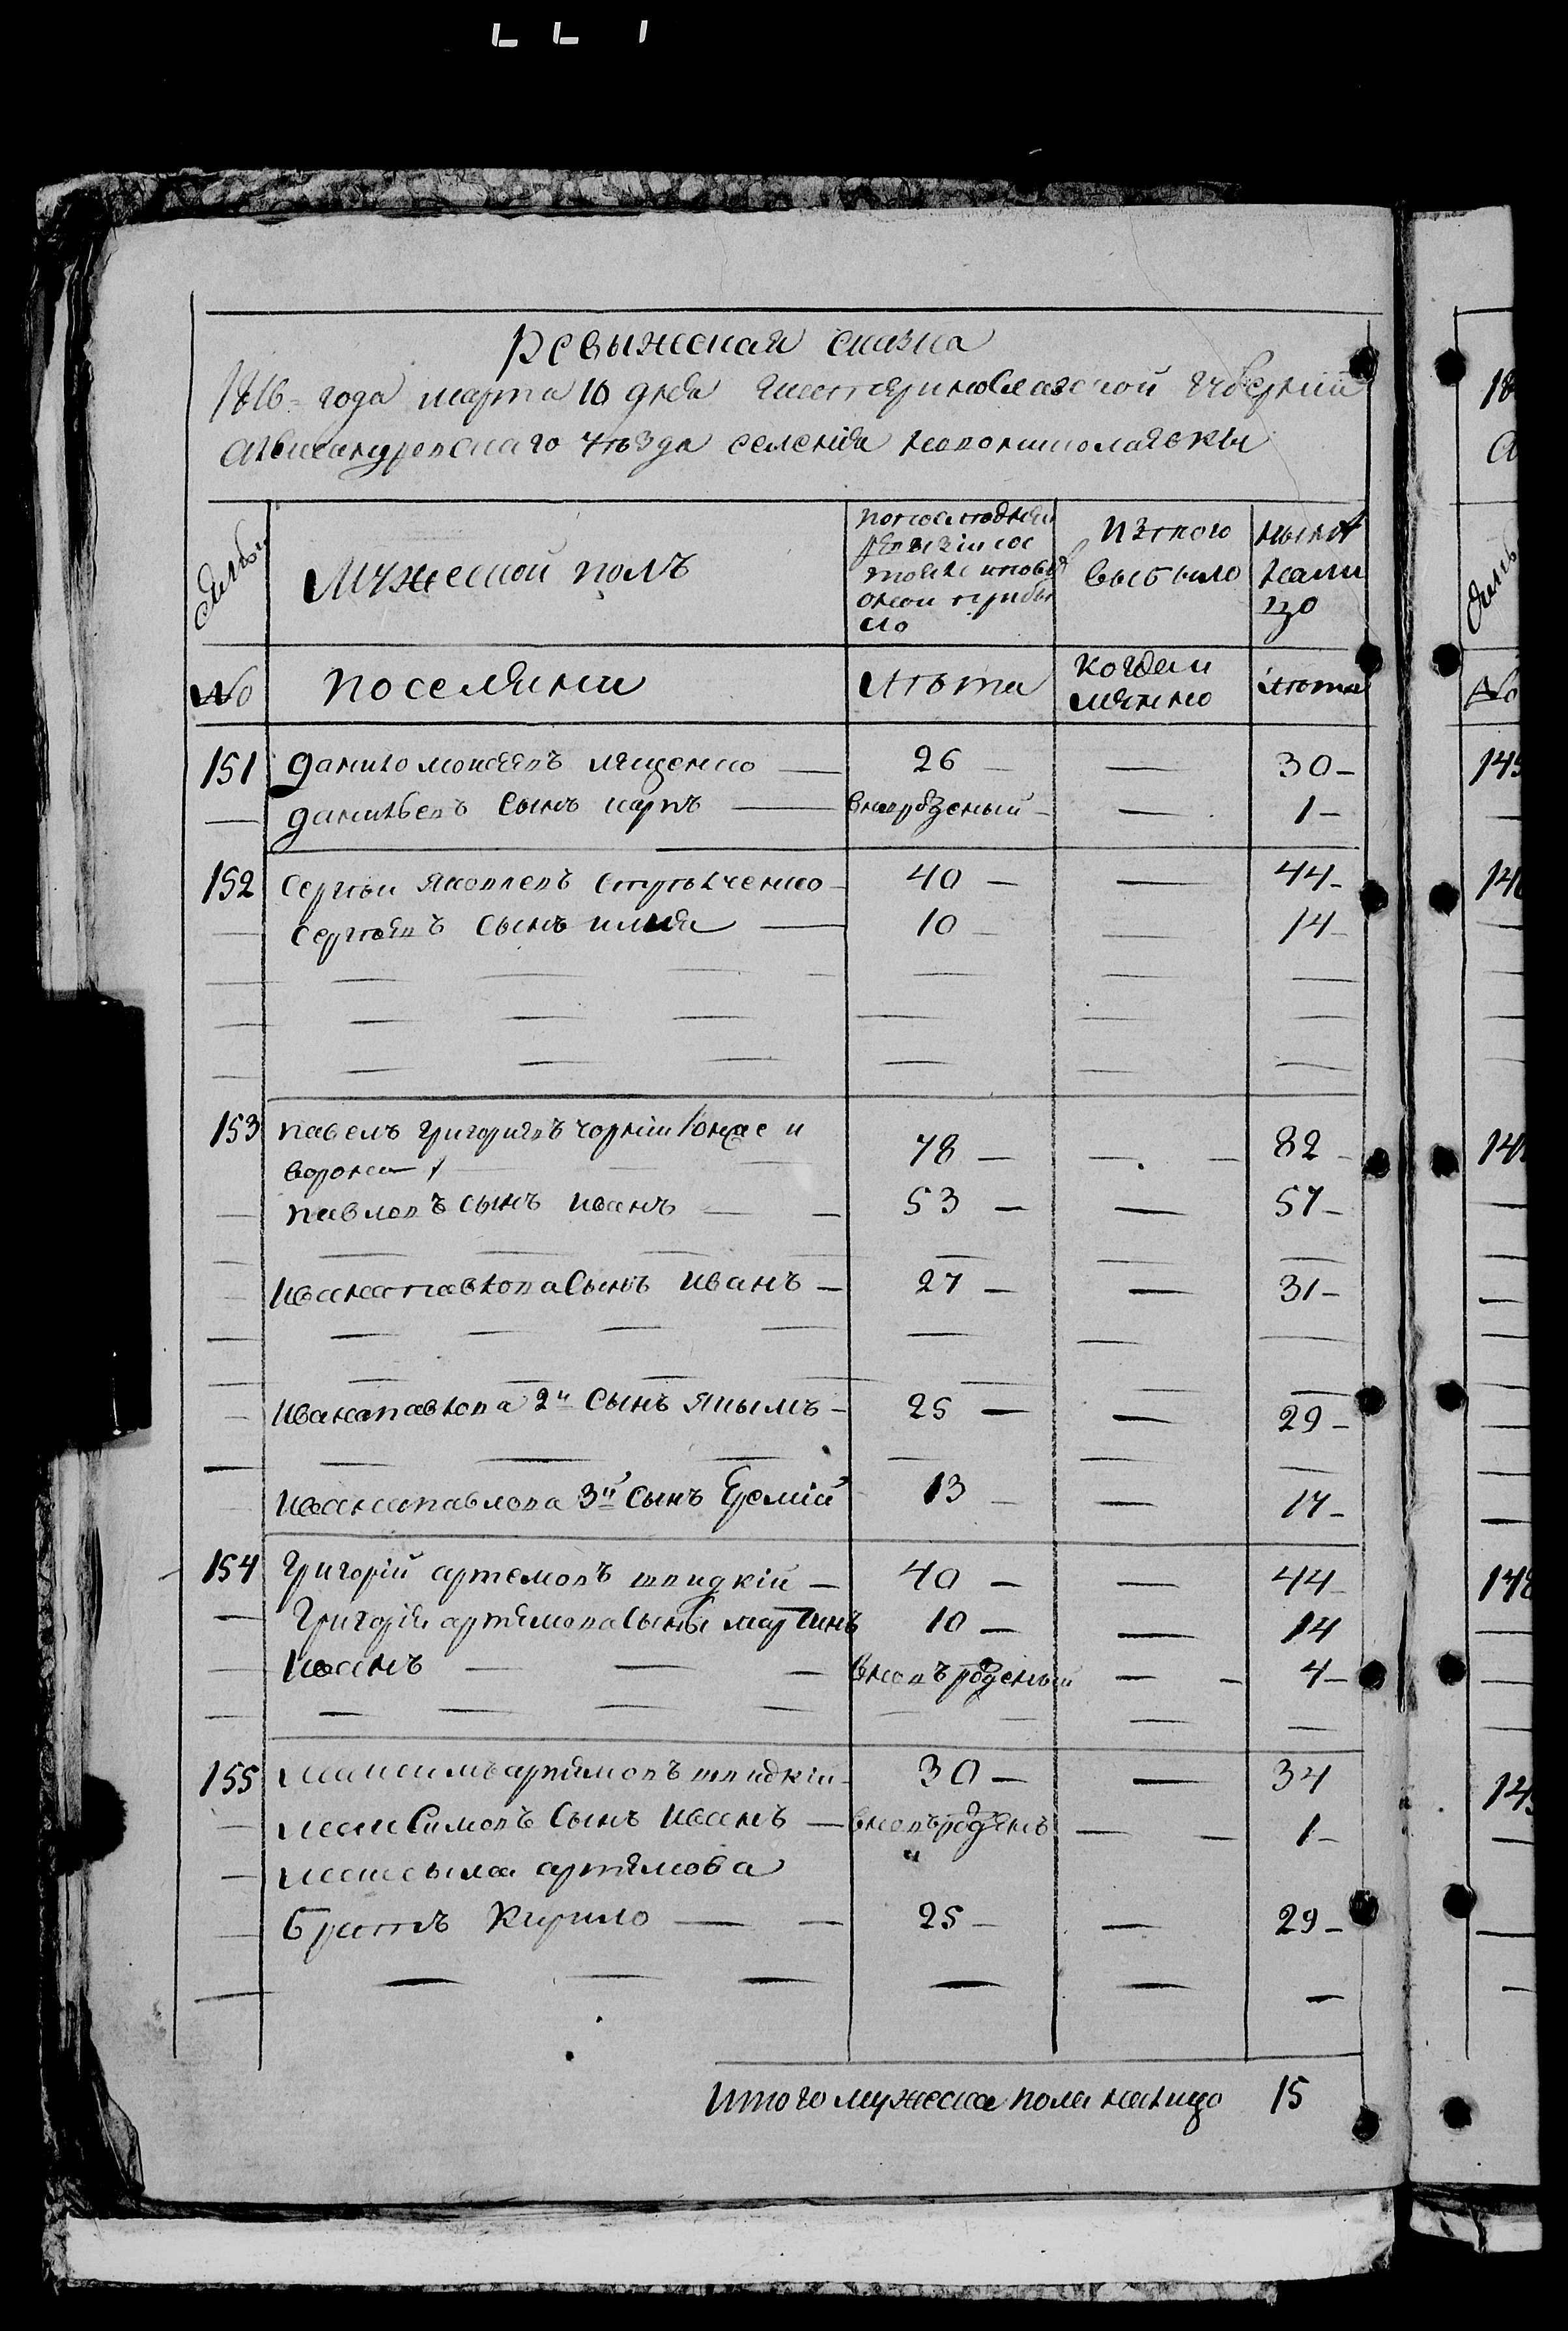 Ревыжеская сказка
1816 = года марта 10 дня екатеринославской губерний
александровскаго уезда селения новониколаевки
семьи
Мужеской полъ
попоследней
ревизии сос
тояло ипосл
оной прибы
ло
изтого
выбыло
ныне
нали
цо
No
поселяни
лета
когдаи
мянно
лета
151 данило моисеевъ ляшенко — 26 — — 30 —
— данилвевъ сынъ карпъ — вновърожденый — — 1 —
152 сергей яковлевъ стрельченко — 40 — — 44 —
— сергеевъ сынъ илия — 10 — — 14 —
153 павелъ григоривъ чорний /онже и
ворона / 78 — — 82 —
— павловъ сынъ иванъ — 53 — — 57 —
иванапавлова сынъ иванъ — 27 — — 31 —
иванапавлова 2й сынъ якымъ — 25 — — 29 —
иванапавлова 3й сынъ Еремий 13 — — 17 —
154 григорий артемовъ швидкий — 40 — — 44 —
— григория артемова сыны мартинъ 10 — — 14
— иванъ — вновърожденый — 4 —
155 максимъ артемовъ швидкий — 30 — — 34
— максимовъ сынъ иванъ — вновърожден
ы — 1 —
— максыма артемова
— братъ кирило — 25 — — 29 —
итого мужеска пола налицо 15
18
а
семь
No
145
146
147
148
149